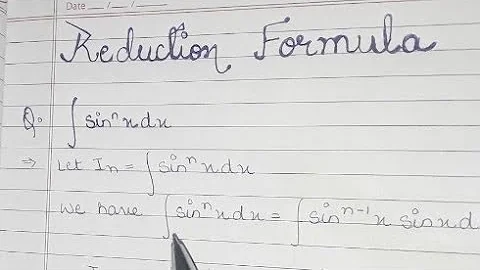 Date __/__/__
Reduction Formula
Q: ∫ sinⁿx dx
⇒ Let Iₙ = ∫ sinⁿx dx
We have ∫ sinⁿx dx = ∫ sinⁿ⁻¹x sinx d